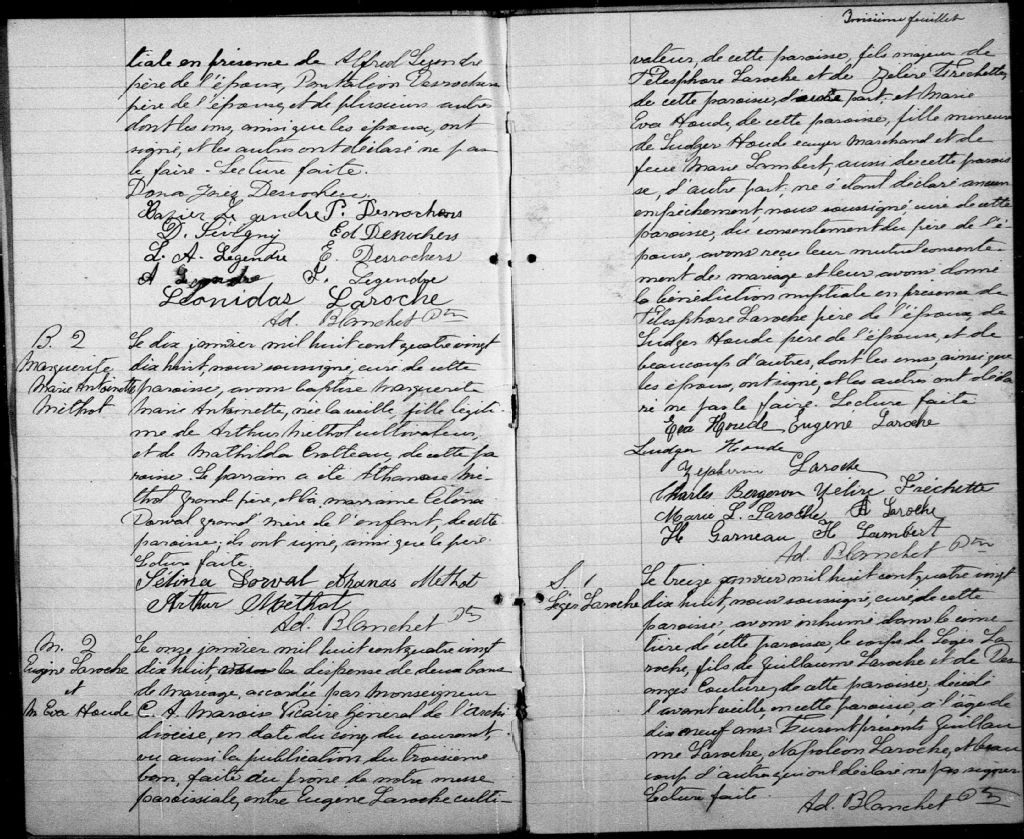 tiale en présence de Alfred Legendre
père de l'époux, Pantaléon Desrochers
père de l'épouse, et de plusieurs autres
dont les uns, ainsi que les époux, ont
signé, et les autres ont déclaré ne pas
le faire - Lecture faite.
Dona Desrochers
Legendre P. Desrochers
D. Ed Desrochers
L. A. Légendre E. Desrochers
A Legendre F. Légendre
Léonidas Laroche
Ad. Blanchet Ptre
B. 2
Marguerite
Marie Antoinette
Méthot
Le dix janvier mil huit cent quatre vingt
dix huit, nous soussigné, curé de cette
paroisse, avons baptisé Marguerite
Marie Antoinette, née la veille, fille légiti-
me de Arthur Méthot cultivateur,
et de Mathilda Crotteau, de cette pa
roisse. Le parrain a été Athanase Mé-
thot grand père, et la marraine Célina
Dorval grand'mère de l'enfant, de cette
paroisse; ils ont signé, ainsi que le père.
Lecture faite.
Sélina Dorval Atanas Méthot
Arthur Méthot
Ad. Blanchet Ptre
M. 2
Eugène Laroche
et
M Eva Houde
Le onze janvier mil huit cent quatre vingt
dix huit, la dispense de deux bans
de mariage, accordée par Monseigneur
C. A. Marois Vicaire Général de l'archi
diocèse, en date du cinq du courant
vu aussi la publication du troisième
ban, faite au prone de notre messe
paroissiale, entre Eugène Laroche culti-
Troisième feuillet
vateur, de cette paroisse, fils majeur de
Télesphore Laroche et de Zélire Fréchette,
de cette paroisse, d'une part; et Marie
Eva Houde, de cette paroisse, fille mineure
de Ludger Houde écuyer Marchand et de
feue Marie Lambert, aussi de cette parois
se, d'autre part; ne s'étant déclaré aucun
empêchement, nous soussigné curé de cette
paroisse, du consentement du père de l'é-
pouse, avons reçu leur mutuel consente-
ment de mariage et leur avons donné
la bénédiction nuptiale en présence de
Télesphore Laroche père de l'époux, de
Ludger Houde père de l'épouse, et de
beaucoup d'autres, dont les uns, ainsi que
les époux, ont signé, et les autres ont décla
ré ne pas le faire. Lecture faite
Eva Houde Eugène Laroche
Ludger Houde
Laroche
Charles Bergeron Zélire Fréchette
Marie L. Laroche A Laroche
H Garneau H Lambert
Ad. Blanchet Ptre
S. 1
Léger Laroche
Le treize janvier mil huit cent quatre vingt
dix huit, nous soussigné, curé de cette
paroisse, avons inhumé dans le cime-
tière de cette paroisse, le corps de Léger La
roche, fils de Guillaume Laroche et de Des
anges Couture, de cette paroisse, décédé
l'avant veille, en cette paroisse, à l'âge de
dix neuf ans. Furent présents Guillau
me Laroche, Napoléon Laroche, et beau
coup d'autres qui ont déclaré ne pas signer
Lecture faite
Ad. Blanchet Ptre